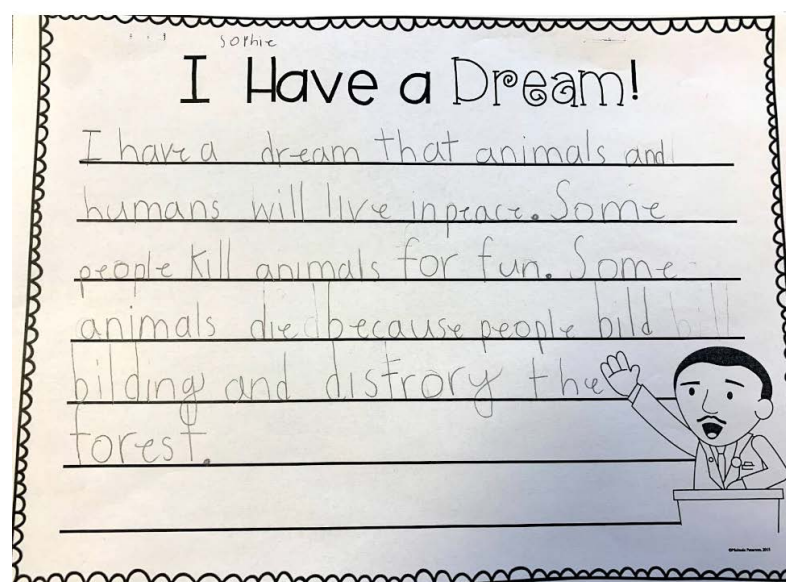 Sophie
I Have a Dream!
I have a dream that animals and
humans will live in peace. Some
people kill animals for fun. Some
animals died because people bild
bilding and distrory the
forest.